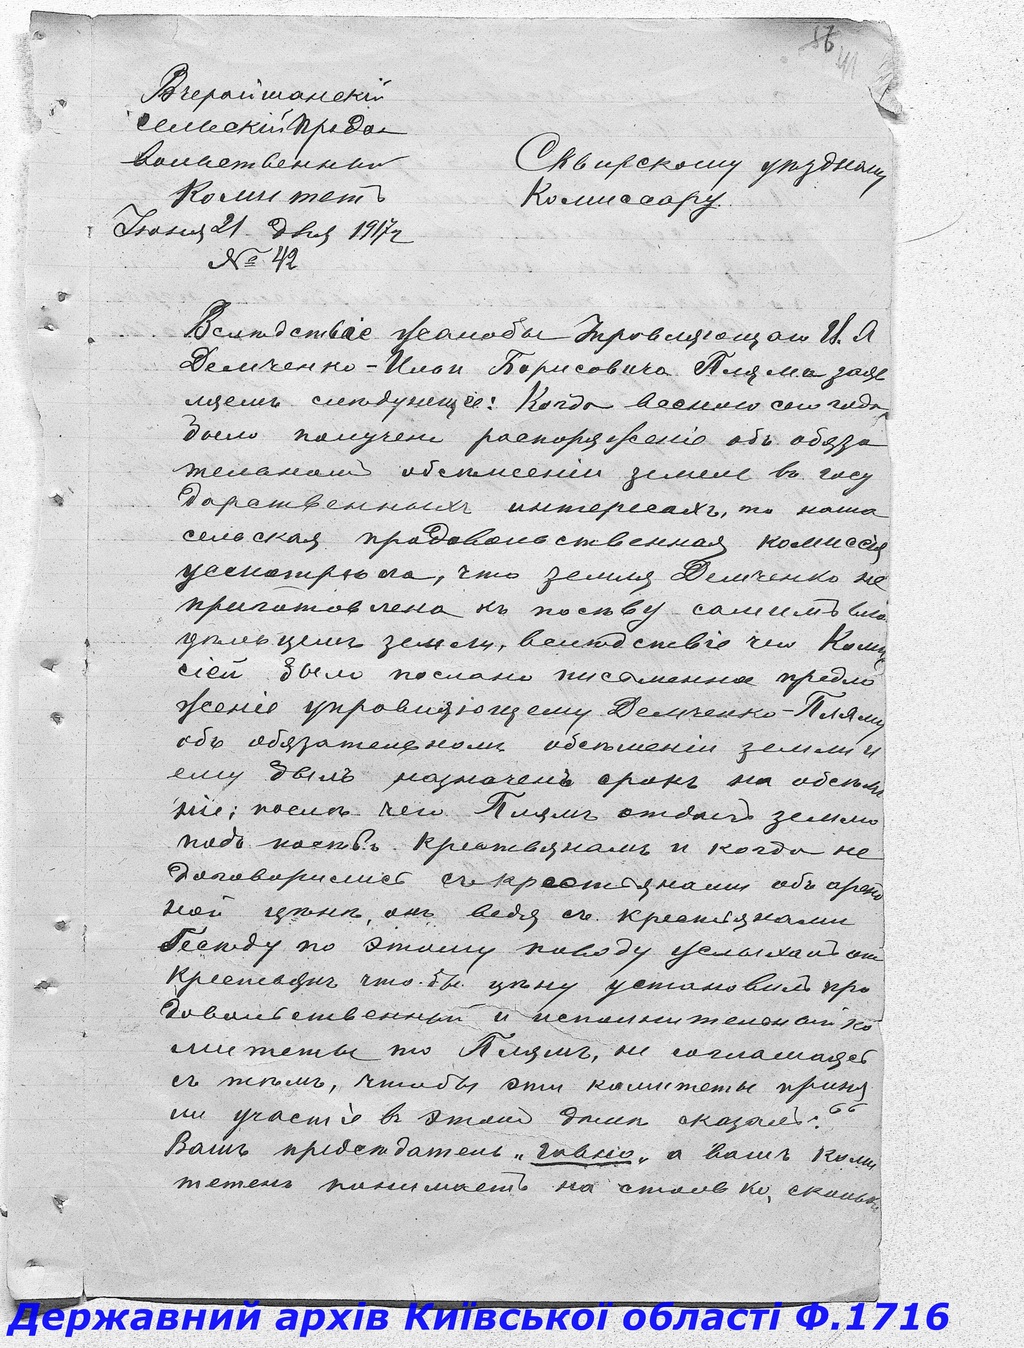 56
41
Вчерайшанскій
сельскій продо
вольственный
Комитетъ
Іюня 21 дня 1917 г
№ 42
Сквирскому уѣздному
Комиссару.
Вслѣдствіе жалобы Управляющаго И. Я
Демченко - Ильи Борисовича Пляма заяв
ляемъ слѣдующее: Когда весною сего года
было получено распоряженіе объ обяза
тельномъ обсѣмененіи земель въ госу
дарственныхъ интересахъ, то наша
сельская продовольственная комиссія
усмотрѣла, что земля Демченко не
приготовлена къ посѣву самимъ вла
дѣльцемъ земли, вслѣдствіе чего Комис
сіей было послано письменное предло
женіе управляющему Демченко - Пляму
объ обязательномъ обсѣмененіи земли и
ему былъ назначенъ срокъ на обсѣмене
ніе; послѣ чего Плямъ отдалъ землю
подъ посѣвъ крестьянамъ и когда не
договорились съ крестьянами объ аренд
ной цѣнѣ, онъ ведя съ крестьянами
бесѣду по этому поводу услыхалъ отъ
крестьянъ что-бы цѣну установилъ про
довольственный и исполнительный ко
митеты то Плямъ, не соглашаясь
съ тѣмъ, чтобы эти комитеты приня
ли участіе въ этомъ дѣлѣ сказалъ: "
Вашъ предсѣдатель „говно„ а вашъ коми
тетъ понимаетъ на столько, сколько
Державний архів Київської області Ф.1716